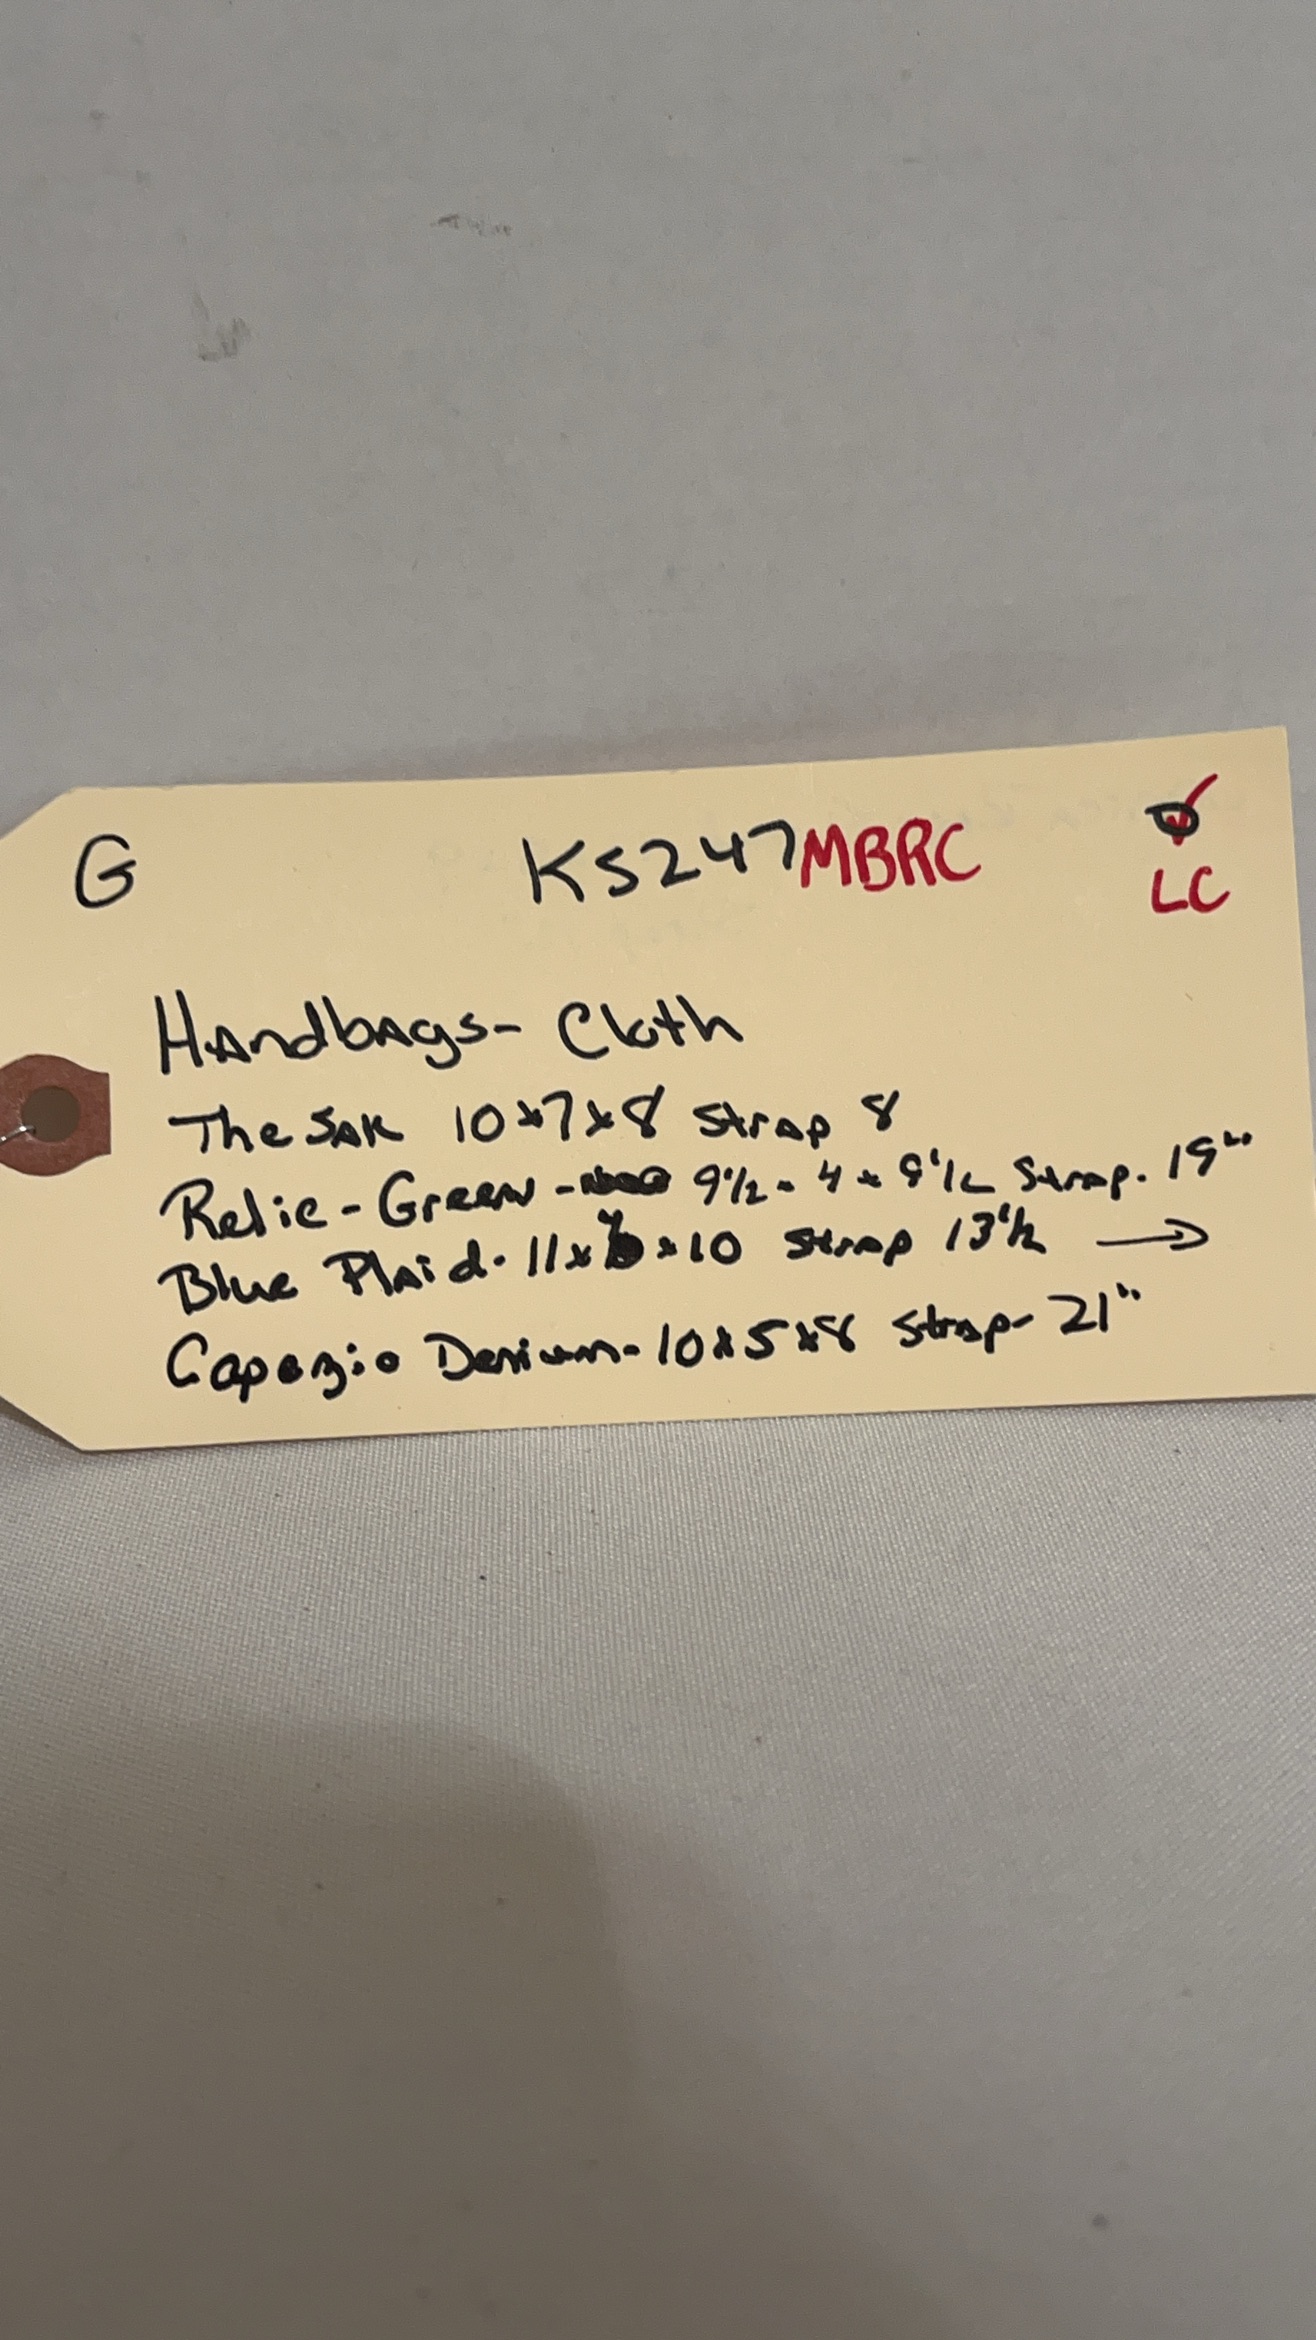 G KS247MBRC LC
Handbags- Cloth
The Sak 10x7x8 Strap 8
Relic-Green- 9 1/2 x 4 x 9 1/2 Strap. 19"
Blue Plaid. 11x x10 Strap 13 1/2 →
Capezio Denium- 10x5x8 Strap- 21"